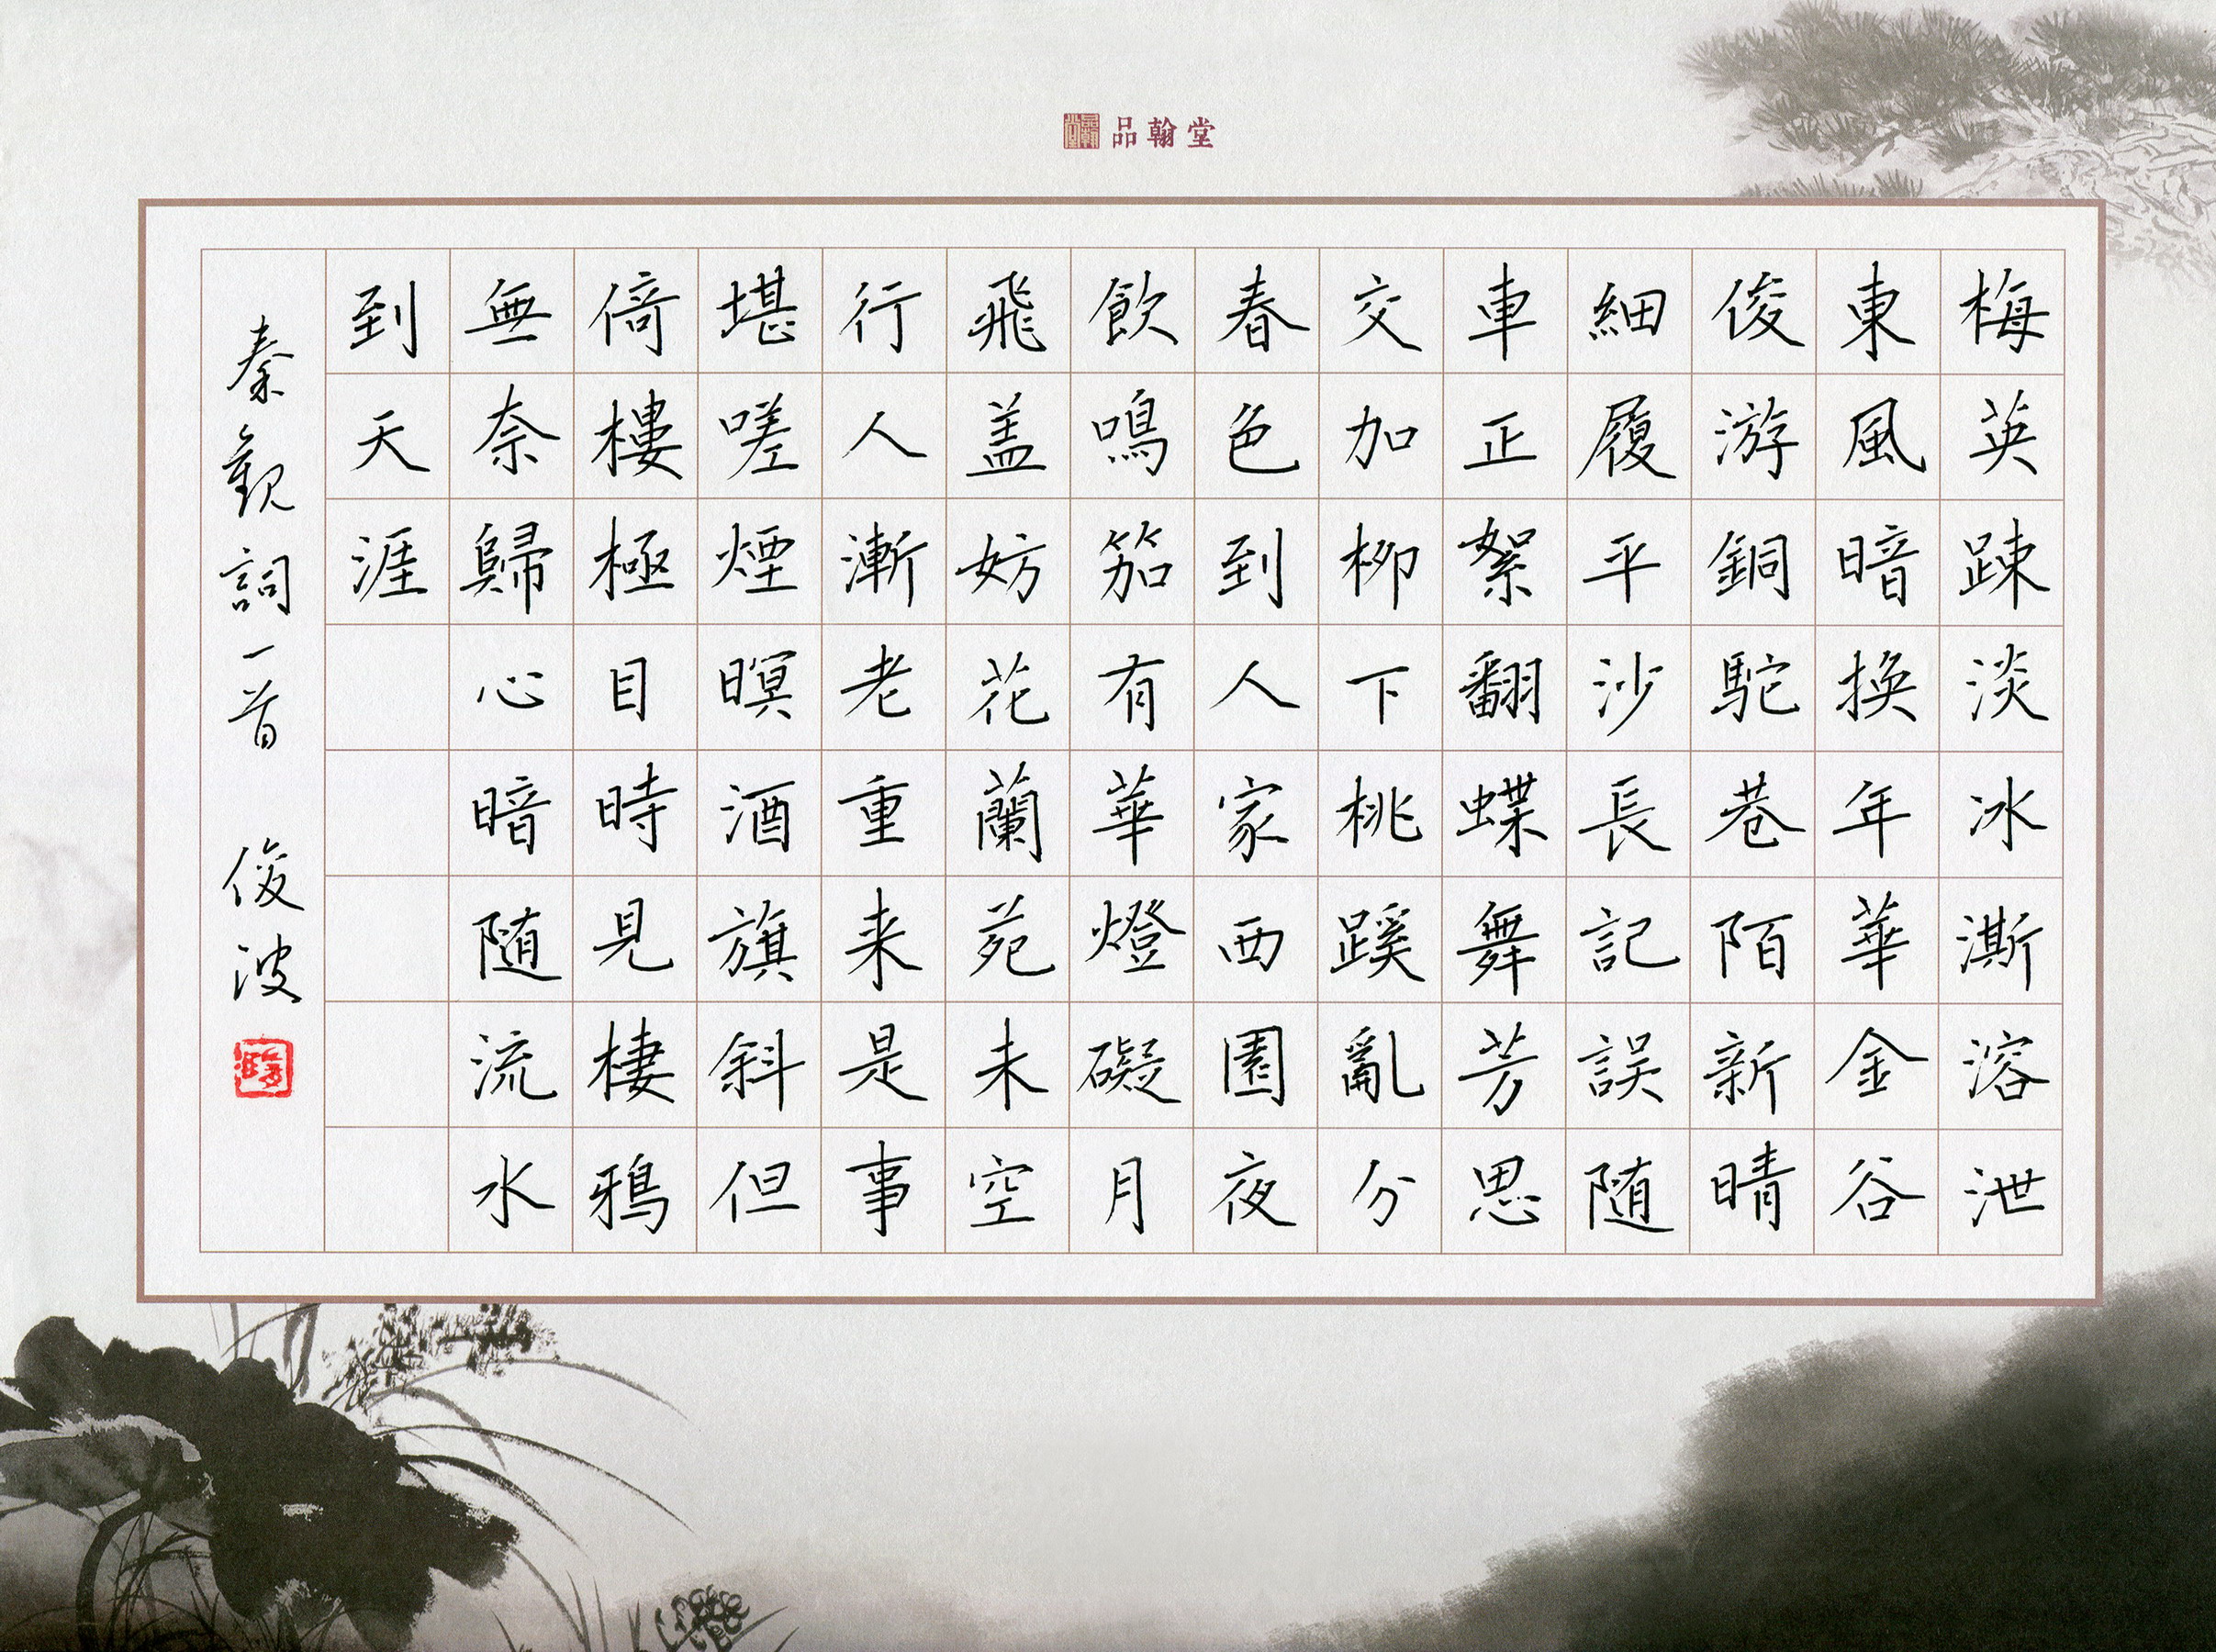 品翰堂
梅英疎淡冰澌溶泄
東風暗換年華金谷
俊游銅駝巷陌新晴
細履平沙長記誤随
車正絮翻蝶舞芳思
交加柳下桃蹊亂分
春色到人家西園夜
飲鳴笳有華燈礙月
飛盖妨花蘭苑未空
行人漸老重来是事
堪嗟煙暝酒旗斜但
倚樓極目時見棲鴉
無奈歸心暗随流水
到天涯
秦觀詞一首 俊波